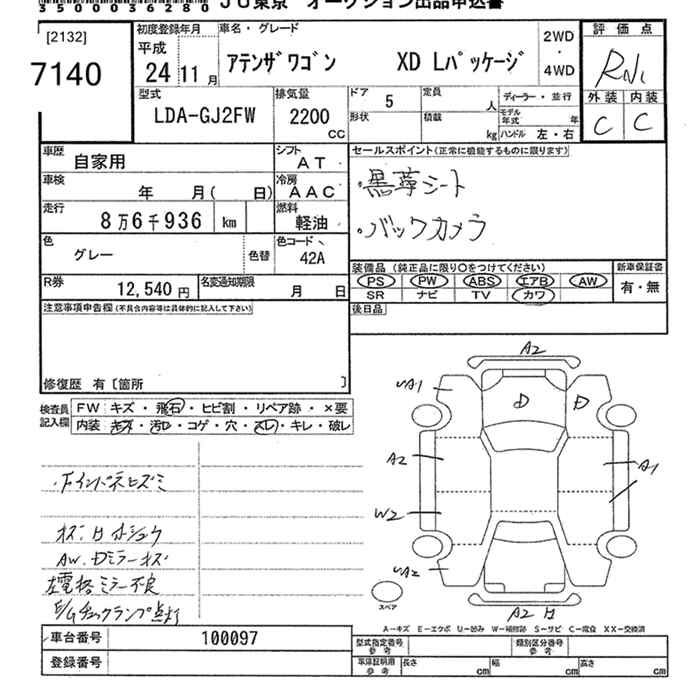 35000036280 JU東京 オークション出品申込書
[2132]
7140
初度登録年月
平成
24 11月
車名・グレード
アテンザワゴン XD Lパッケージ
2WD
・
4WD
評価点
外装 内装
C C
型式
LDA-GJ2FW
排気量
2200
CC
ドア 5
定員 人
形状
積載 kg
ディーラー・並行
モデル年式 年
ハンドル 左・右
車歴 自家用
シフト AT
車検 年 月( 日)
冷房 AAC
走行 8万6千936 km
燃料 軽油
色 グレー
色替
色コード 42A
R券 12,540円
名変通知期限 月 日
セールスポイント(正常に機能するものに限ります)
・黒革シート
・バックカメラ
装備品(純正品に限り○をつけてください)
新車保証書
PS PW ABS エアB AW
有・無
SR ナビ TV カワ
後日品
注意事項申告欄(不具合内容等は具体的に記入して下さい)
修復歴 有[箇所 ]
検査員記入欄
FW キズ・飛石・ヒビ割・リペア跡・×要
内装・キズ・汚レ・コゲ・穴・スレ・キレ・破レ
A2
A1
D
D
A2
A1
W2
A2
A2
スペア
・Fインパネヒズミ
AW.Dミラーキズ
左電格ミラー不良
E/Gチェックランプ点灯
A-キズ E-エクボ U-凹み W-補修跡 S-サビ C-腐食 XX-交換済
車台番号 100097
型式指定番号 参考
類別区分番号 参考
登録番号
車庫証明用 参考
長さ cm
幅 cm
高さ cm